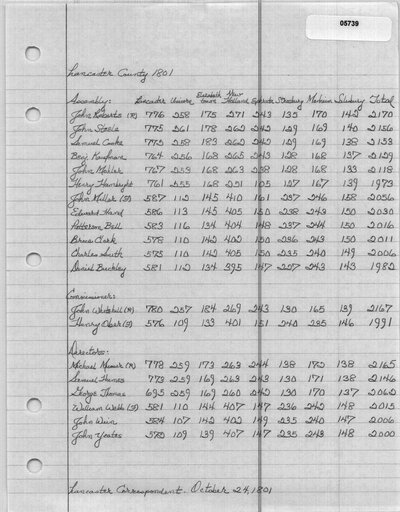 05739
Lancaster County 1801
Elizabeth New
Assembly: Lancaster town Holland Ephrata Strasburg Salisbury Total
John Roberts (R) 776 258 175 271 243 135 170 142 2170
John Steele 775 261 178 262 242 129 169 140 2156
Samuel Cooke 775 258 183 262 242 129 169 138 2153
Benj Kaufman 764 256 168 265 243 128 168 137 2129
John Mohler 767 253 168 263 238 128 168 133 2118
Henry Hambright 761 255 168 251 105 127 167 139 1973
John Miller (F) 587 112 145 410 161 237 246 158 2056
Edward Hand 586 113 145 405 150 238 243 150 2030
Patterson Bell 583 116 134 404 148 237 244 150 2016
Brice Clark 578 110 142 402 150 236 243 150 2011
Charles Smith 575 110 142 405 150 235 240 149 2006
Daniel Buckley 581 112 134 395 147 227 243 143 1982
Commissioner:
John Whitehill (R) 780 257 184 269 243 130 165 139 2167
Henry Ober (F) 576 109 133 401 151 240 235 146 1991
Directors:
Michael (R) 778 259 173 263 244 138 172 138 2165
Samuel Haines 773 259 169 263 243 130 171 138 2146
George Thomas 695 259 169 260 242 130 170 137 2062
William Webb (F) 581 110 144 407 147 236 242 148 2015
John Wein 584 107 142 402 149 235 240 147 2006
John Yeates 572 109 139 407 147 235 243 148 2000
Lancaster Correspondent. October 24, 1801